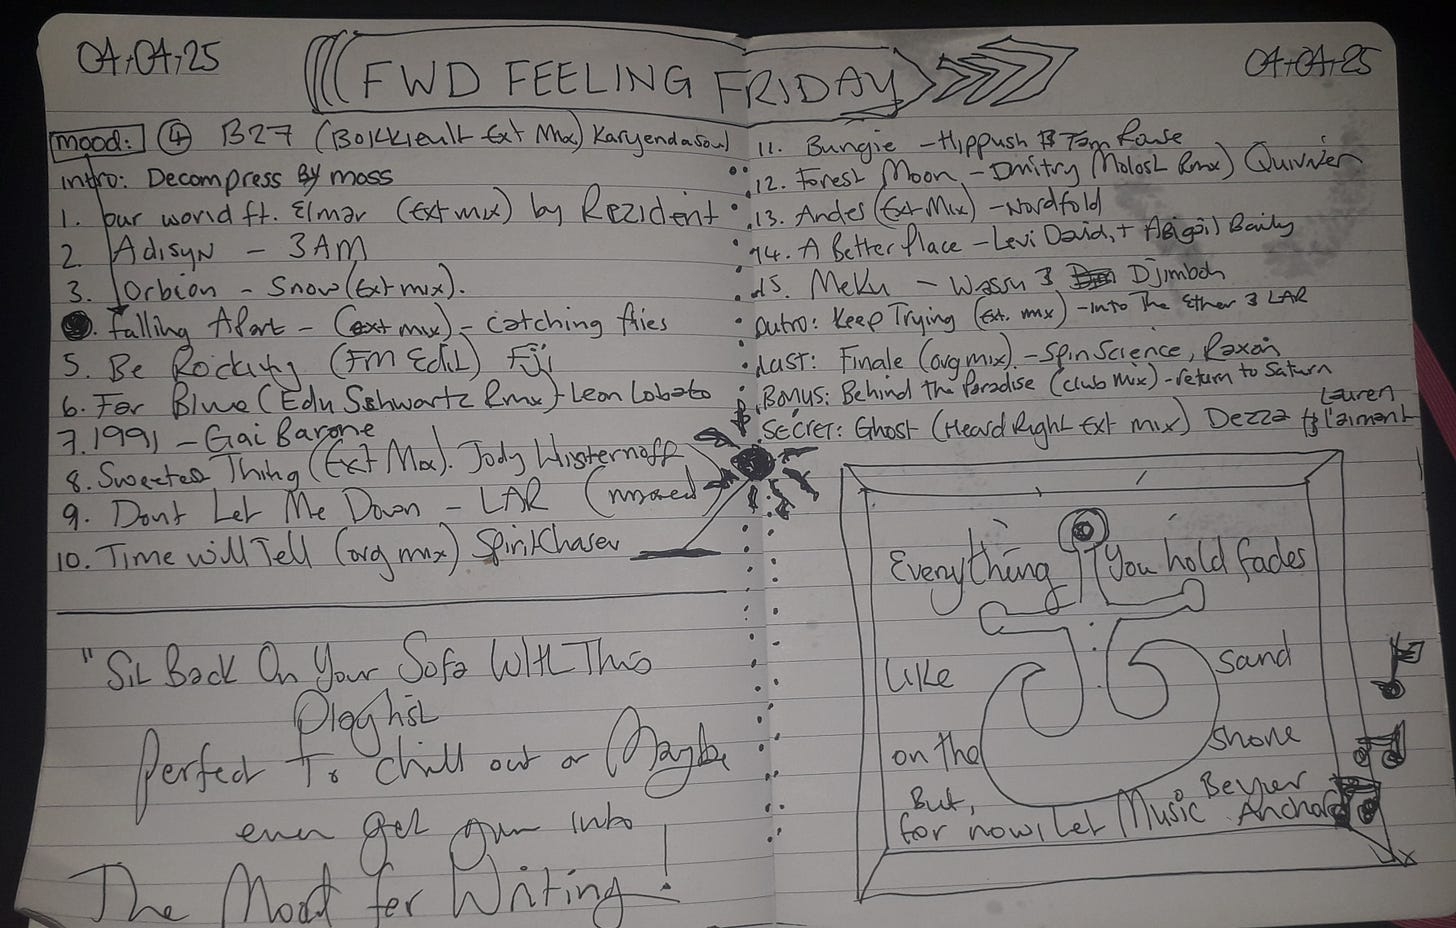 04.04.25
FWD FEELING FRIDAY
04.04.25
mood: 4 B27 (Ext Mix) Karyendasoul
intro: Decompress By moss
1. our world ft. Elmar (Ext mix) by Rezident
2. Adisyn - 3AM
3. Orbion - Snow (Ext mix).
. Falling Apart - (ext mix) - catching flies
5. Be Rocking (FM Edit) Fiji
6. Far Blue (Edu Schwartz Rmx) - Leon Lobato
7. 1991 - Gai Barone
8. Sweetest Thing (Ext Mix). Jody Wisternoff
9. Dont Let Me Down - LAR (mixed)
10. Time will Tell (org mix) SpiritChaser
"Sit Back On Your Sofa With This
Playlist
Perfect To chill out or Maybe
even get you into
The Mood for Writing!
11. Bungie - Hippush Tom Rouse
12. Forest Moon - Dmitry Molosh Rmx) Quivver
13. Andes (Ext Mix) - Nordfold
14. A Better Place - Levi David, + Abigail Baily
15. Meku - Wassu Djimboh
Outro: Keep Trying (Ext. mix) - Into The Ether 3 LAR
Last: Finale (org mix) - Spin Science, Raxon
Bonus: Behind The Paradise (club mix) - return to Saturn
Secret: Ghost (Heard Right Ext mix) Dezza ft Lauren L'aimant
Everything You hold fades
Like sand
on the shore
But,
for now, let Music Be your Anchor